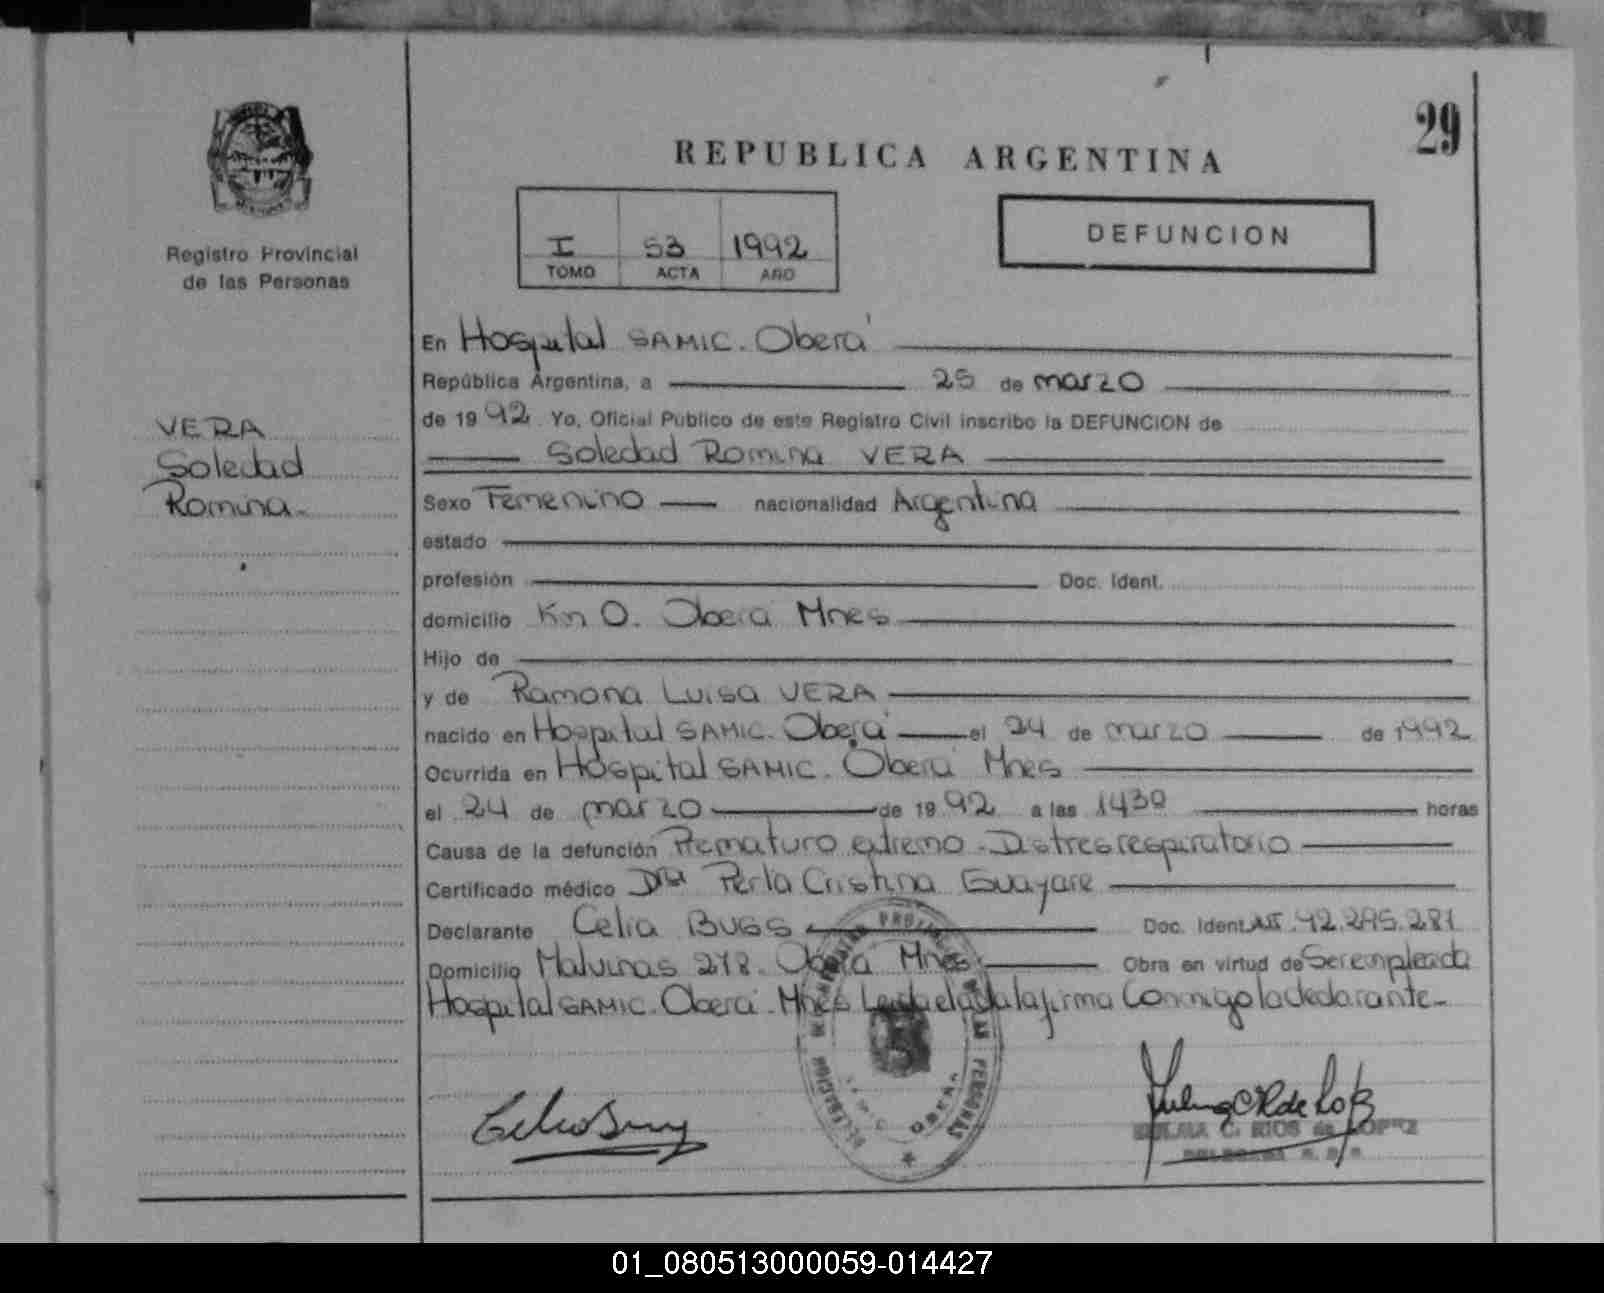 29
REPUBLICA ARGENTINA
Registro Provincial
de las Personas
I 53 1992
TOMO ACTA AÑO
DEFUNCION
VERA
Soledad
Romina.-
En Hospital SAMIC. Oberá
República Argentina, a 25 de marzo
de 1992 Yo, Oficial Público de este Registro Civil inscribo la DEFUNCION de
Soledad Romina VERA
Sexo Femenino nacionalidad Argentina
estado
profesión Doc. Ident.
domicilio Km 0. Oberá Mnes
Hijo de
y de Ramona Luisa VERA
nacido en Hospital SAMIC. Oberá el 24 de marzo de 1992
Ocurrida en Hospital SAMIC. Oberá Mnes
el 24 de marzo de 1992 a las 1430 horas
Causa de la defunción Prematuro extremo - Distres respiratorio
Certificado médico Dra Perla Cristina Guayare
Declarante Celia BUSS Doc. Ident. 12.295.281
Domicilio Malvinas 278. Oberá Mnes Obra en virtud de Ser empleada
Hospital SAMIC. Oberá Mnes Leida el acta la firma Conmigo la declarante-
DELEGACION OBERA
ZULMA C. RIOS de LOPEZ
DELEGADA R. P. P.
01_080513000059-014427